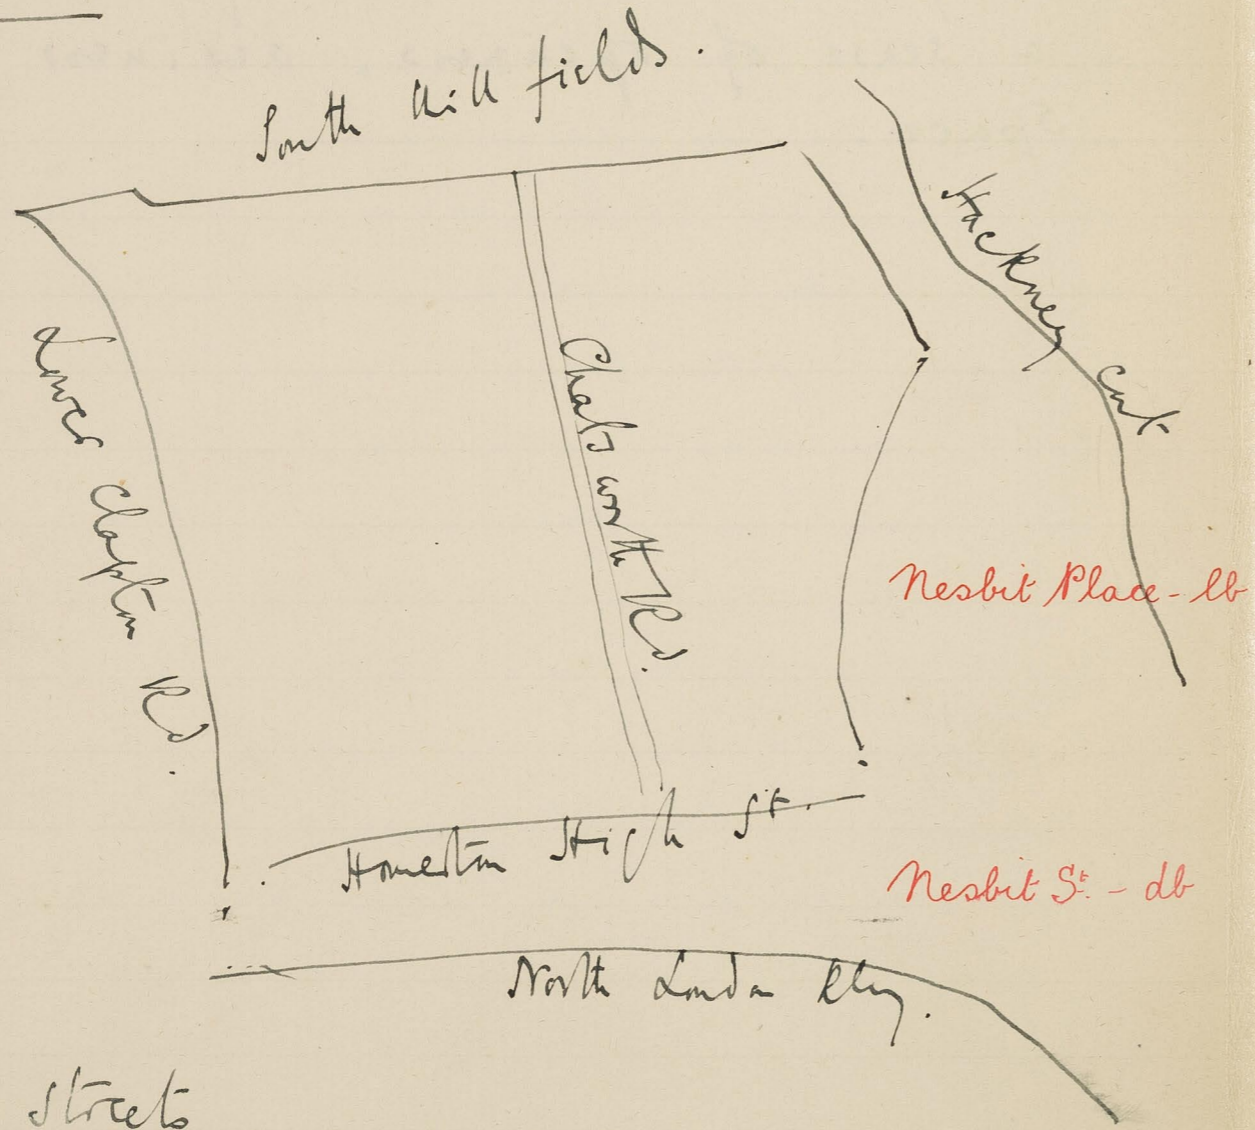 South Mill fields.
Hackney cut
Lower Clapton Rd.
Chatsworth Rd.
Nesbit Place - lb
Homerton High St.
Nesbit St. - db
North London Rly.
Streets